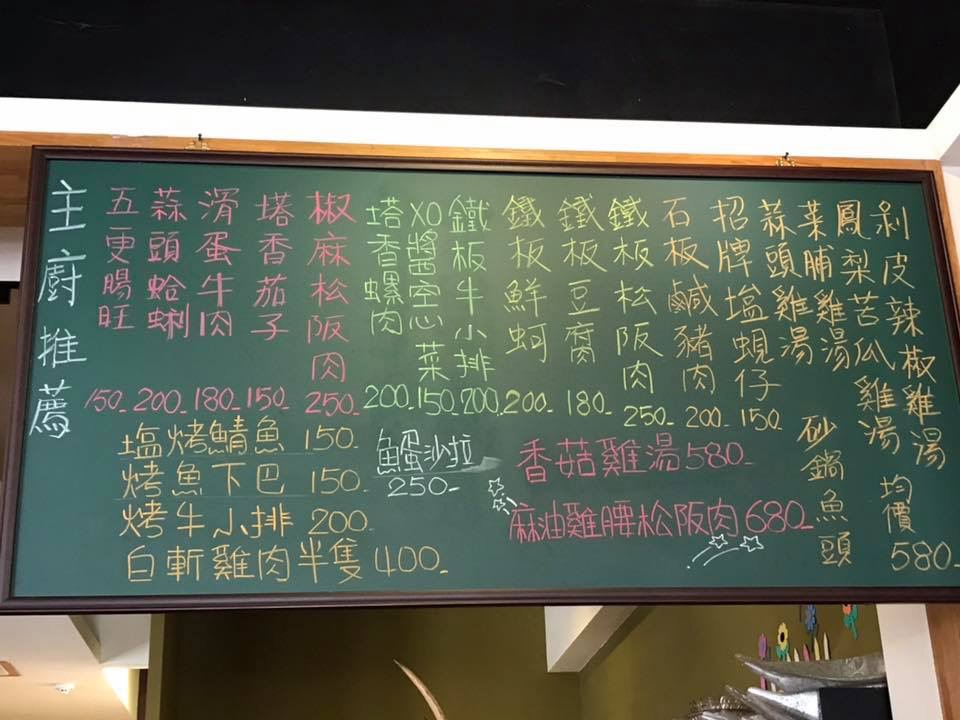 主廚推薦
五更腸旺 150-
蒜頭蛤蜊 200-
滑蛋牛肉 180-
塔香茄子 150-
椒麻松阪肉 250-
塔香螺肉 200-
XO醬空心菜 150-
鐵板牛小排 200-
鐵板鮮蚵 200-
鐵板豆腐 180-
鐵板松阪肉 250-
石板鹹豬肉 200-
招牌塩蜆仔 150-
蒜頭雞湯
菜脯雞湯
鳳梨苦瓜雞湯
剝皮辣椒雞湯
砂鍋魚頭
均價580-
塩烤鯖魚 150-
烤魚下巴 150-
烤牛小排 200-
白斬雞肉半隻400-
魚蛋沙拉
250-
香菇雞湯580-
麻油雞腰松阪肉680-